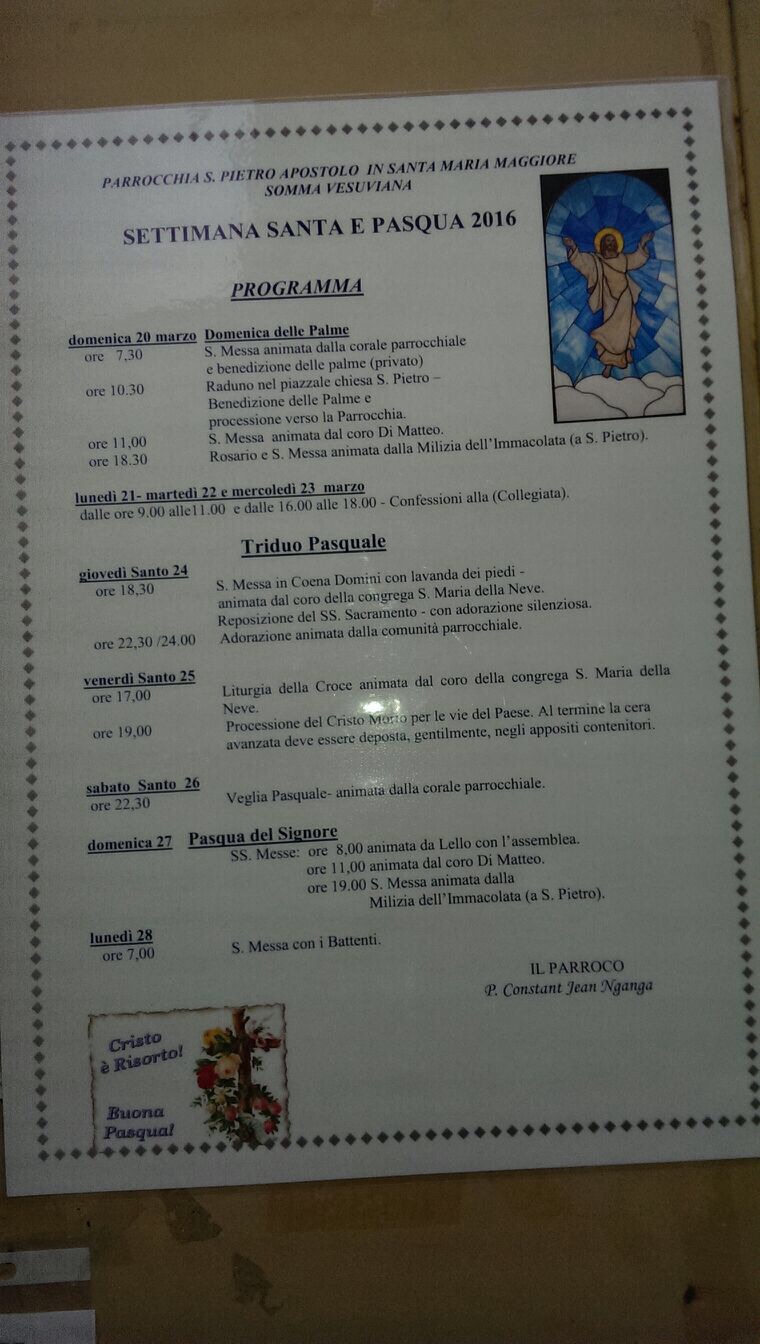 PARROCCHIA S. PIETRO APOSTOLO IN SANTA MARIA MAGGIORE
SOMMA VESUVIANA
SETTIMANA SANTA E PASQUA 2016
PROGRAMMA
domenica 20 marzo Domenica delle Palme
ore 7,30 S. Messa animata dalla corale parrocchiale
e benedizione delle palme (privato)
ore 10.30 Raduno nel piazzale chiesa S. Pietro –
Benedizione delle Palme e
processione verso la Parrocchia.
ore 11,00 S. Messa animata dal coro Di Matteo.
ore 18.30 Rosario e S. Messa animata dalla Milizia dell'Immacolata (a S. Pietro).
lunedì 21- martedì 22 e mercoledì 23 marzo
dalle ore 9.00 alle11.00 e dalle 16.00 alle 18.00 - Confessioni alla (Collegiata).
Triduo Pasquale
giovedì Santo 24
ore 18,30 S. Messa in Coena Domini con lavanda dei piedi -
animata dal coro della congrega S. Maria della Neve.
Reposizione del SS. Sacramento - con adorazione silenziosa.
ore 22,30 /24.00 Adorazione animata dalla comunità parrocchiale.
venerdì Santo 25
ore 17,00 Liturgia della Croce animata dal coro della congrega S. Maria della
Neve.
ore 19,00 Processione del Cristo Morto per le vie del Paese. Al termine la cera
avanzata deve essere deposta, gentilmente, negli appositi contenitori.
sabato Santo 26
ore 22,30 Veglia Pasquale- animata dalla corale parrocchiale.
domenica 27 Pasqua del Signore
SS. Messe: ore 8,00 animata da Lello con l'assemblea.
ore 11,00 animata dal coro Di Matteo.
ore 19.00 S. Messa animata dalla
Milizia dell'Immacolata (a S. Pietro).
lunedì 28
ore 7,00 S. Messa con i Battenti.
IL PARROCO
P. Constant Jean Nganga
Cristo
è Risorto!
Buona
Pasqua!